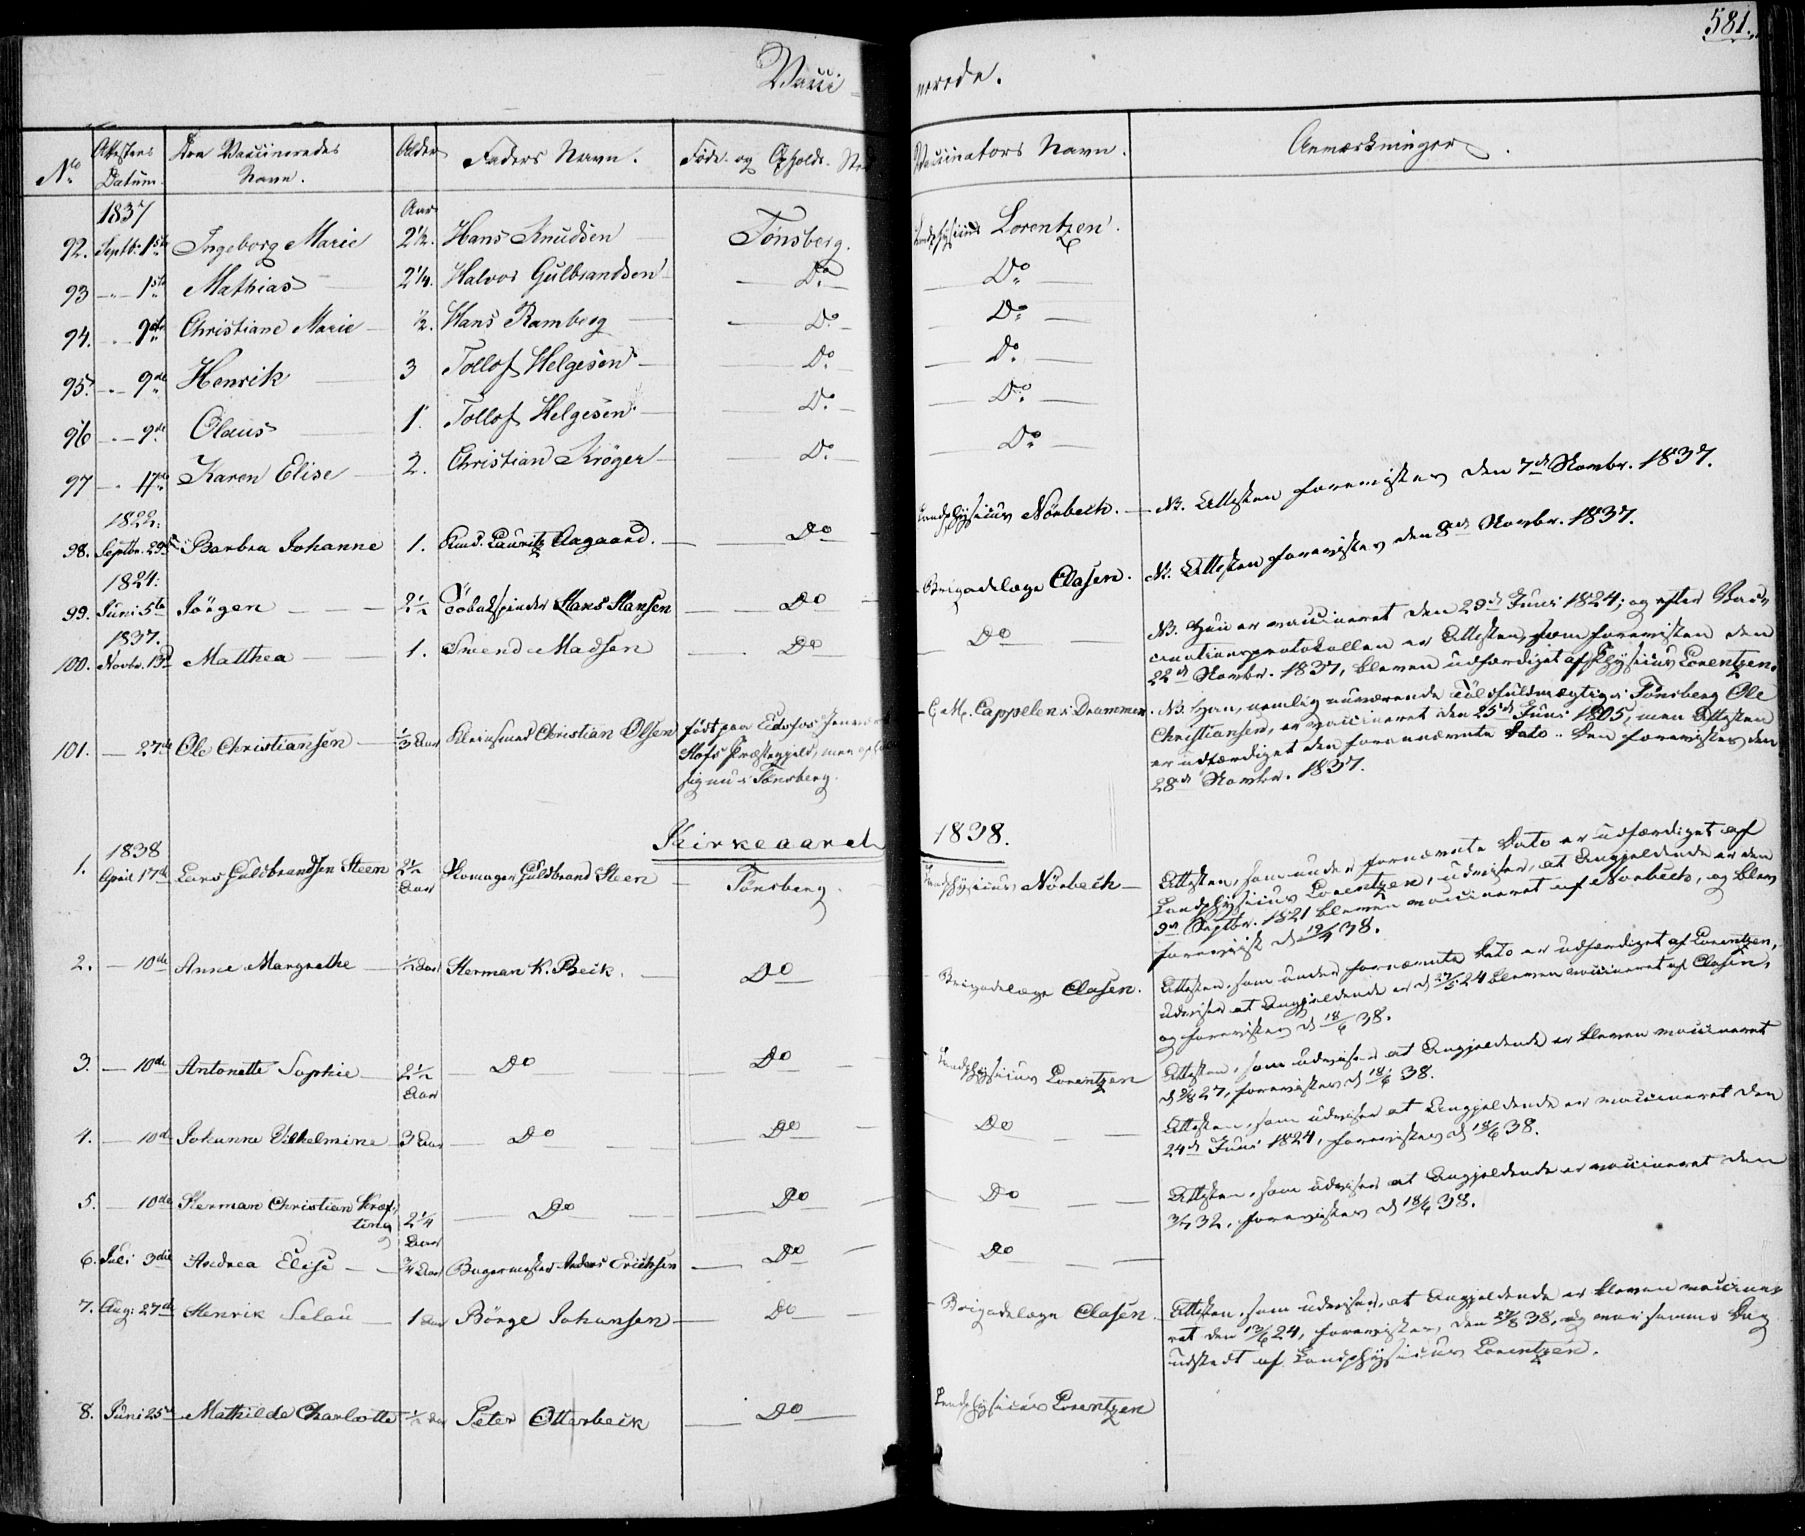 581.
Vacci-
nerede.
No Attestens Datum. Den Vaccineredes Navn. Alder Faders Navn. Føde- og Opholds-Sted
Vaccinators Navn. Anmærkninger.
1837 Aar
92. Septb. 1ste Ingeborg Marie 2½. Hans Knudsen Tønsberg. Landphysicus Lorentzen.
93 - " 1ste Mathias 2¼. Halvor Gulbrandsen Do Do
94. - " 9de Christiane Marie ½. Hans Ramberg Do Do
95. - " 9de Henrik 3 Tollof Helgesen Do Do
96 - " 9de Olaus 1. Tollof Helgesen Do Do
97 - " 17de Karen Elise 2. Christian Krøger Do Do
1822:
98. Septbr. 29 Barbra Johanne 1. Lauritz Aagaard. Do Landphysicus Nörbech. NB. Attesten foreviistes den 7de Novbr. 1837.
1824:
99. Juni 5te Jörgen 2½ Tobakspinder Hans Hansen Do Brigadelæge Clasen. NB. Attesten foreviistes den 8de Novbr. 1837.
1837.
100. Novbr. 13de Matthea 1. Svend Madsen Do Do NB. Hun er vaccineret den 29de Juni 1824; og efter Vacci-
nationsprotokollen er Attesten, som foreviistes den
22de Novbr. 1837, bleven udfærdiget af Physicus Lorentzen.
101. - 27de Ole Christiansen ⅓ Aar Kleinsmed Christian Olsen født paa Eidsfos Jernværk
Hofs Præstegjeld, men
sig nu i Tønsberg.
C. M. Cappelen i Drammen. NB. Han, nemlig nuværende Toldfuldmægtig i Tønsberg Ole
Christiansen, er vaccineret den 25de Juni 1805, men Attesten
er udfærdiget den forannævnte Dato. Den foreviistes den
28de Novbr. 1837.
Kirkeaaret 1838.
1838
1. April 17de Lars Guldbrandsen Steen 2½ Aar Guldbrand Steen Tønsberg. Landphysicus Nörbech Attesten, som under fornævnte Dato er udfærdiget af
Landphysicus Lorentzen, udviser, at Angjeldende er den
9de Septbr. 1821 bleven vaccineret af Nörbech, og blev
foreviist d. 38.
2. - 10de Anne Margrethe ½ Aar Herman K. Beck. Do Brigadelæge Clasen. Attesten, som under fornævnte Dato er udfærdiget af Lorentzen,
udviser at Angjeldende er d. 24 bleven vaccineret af Clasen,
og foreviistes d. 18/6 38.
3. - 10de Antonette Sophie 2½ Aar Do Do Landphysicus Lorentzen Attesten, som udviser at Angjeldende er bleven vaccineret
d. 27, foreviistes d. 18/6 38.
4. - 10de Johanne Vilhelmine 3 Aar Do Do Do Attesten, som udviser at Angjeldende er vaccineret den
24de Juni 1824, foreviistes d. 18/6 38.
5. - 10de Herman Christian Kræf-
ting 2¼ Aar Do Do Do Attesten, som udviser at Angjeldende er vaccineret den
32, foreviistes d. 18/6 38.
6. Juli 3die Andrea Elise ¾ Aar Bagermester Anders Erichsen Do Do
7. Aug: 27de Henrik Selau 1 Aar Börge Johansen Do Brigadelæge Clasen Attesten, som udviser, at Angjeldende er bleven vaccine-
ret den 24, foreviistes den 27/8 38, og var samme Dag
udstedt af Landphysicus Lorentzen.
8. Juni 25de Mathilde Charlotte ½ Aar Peter Otterbeck Do Landphysicus Lorentzen